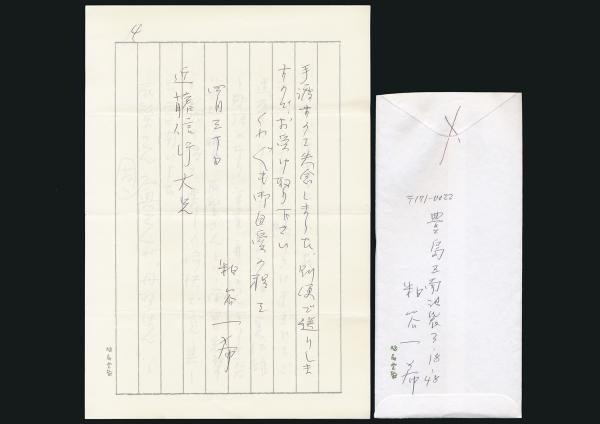 4
手渡すのを失念しました。別便で送りしま
すので、お受け取り下さい
くれぐも御自愛の程を
四月三十日
粕谷一希
近藤信行大兄
〒171-0022
豊島区南池袋3-18-48
粕谷一希